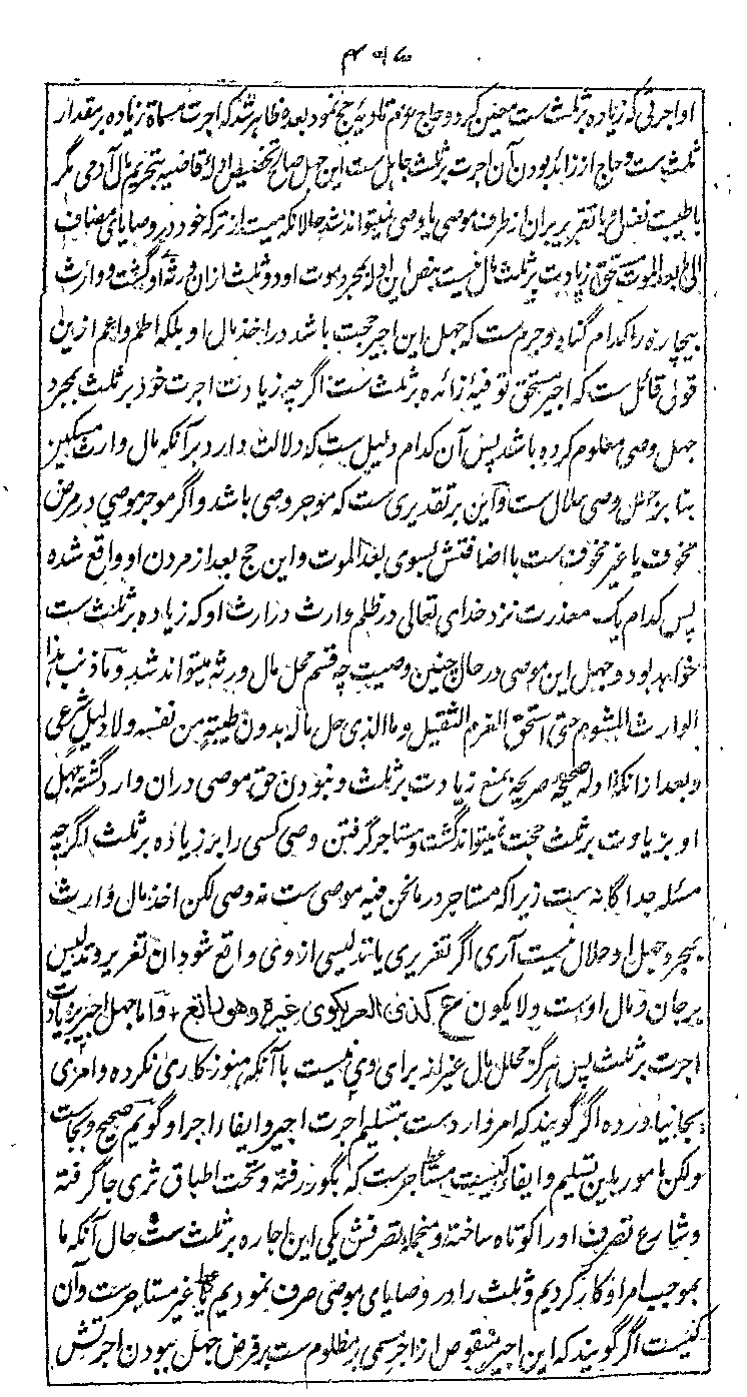 او اجرتی که زیاده بر ثلث ست معین کرد و حاج مؤتم تادیهٔ حج نمود بعده ظاهر شد که اجرت مسماة زیاده بر مقدار
ثلث ست و حاج از زائد بودن آن اجرت بر ثلث جاهل ست این جهل صالح تخصیص ادلهٔ قاضیه بتحریم مال آدمی مگر
با طیبت نفس او یا تقریر بران از طرف موصی یا وصی نمیتواند شد حالانکه میت از ترکه خود در وصایای مضاف
الی بعد الموت مستحق زیادت بر ثلث مال نیست بنص این ادله بمجرد موت او دو ثلث ازان ورثهٔ او گشت و وارث
بیچاره را کدام گناه و جرم ست که جهل این اجیر حجت باشد در اخذ مال او بلکه اطم و اعم ازین
قول قائل ست که اجیر مستحق توفیهٔ زائده بر ثلث ست اگرچه زیادت اجرت خود بر ثلث بمجرد
جهل وصی معلوم کرده باشد پس آن کدام دلیل ست که دلالت دارد بر آنکه مال وارث مسکین
بنا بر جهل وصی حلال ست و این بر تقدیری ست که موجر وصی باشد و اگر موجر موصی در مرض
مخوف یا غیر مخوف ست با اضافتش بسوی بعد الموت و این حج بعد از مردن او واقع شده
پس کدام یک معذرت نزد خدای تعالی در ظلم وارث در ارث او که زیاده بر ثلث ست
خواهد بود و جهل این موصی در حال چنین وصیت چه قسم محل مال ورثه میتواند شد و ما ذنب هذا
الوارث المشوم حتی استحق الغرم الثقیل و ما الذی حل ماله بدون طیبة من نفسه ولا دلیل شرعی
و بعد ازانکه ادلهٔ صحیحه صریحه بمنع زیادت بر ثلث و نبودن حق موصی دران وارد گشته جهل
او بزیادت بر ثلث حجت نمیتواند گشت و مستاجر گرفتن وصی کسی را بر زیاده بر ثلث اگرچه
مسئله جداگانه ست زیرا که مستاجر در ما نحن فیه موصی ست نه وصی لکن اخذ مال وارث
بمجرد جهل او حلال نیست آری اگر تغریری یا تدلیسی از وی واقع شود آن تغریر و تدلیس
بر جان و مال اوست ولا یکون ع کذی العر یکوی غیره وهو راتع + و اما جهل اجیر بزیادت
اجرت بر ثلث پس هرگز محلل مال غیر از برای وی نیست با آنکه هنوز کاری نکرده و امری
بجا نیاورده اگر گویند که امر وارد ست بتسلیم اجرت اجیر و ایفاء اجر او گویم صحیح و بجاست
ولکن مامور باین تسلیم و ایفا کیست مستاجر ست که بگور رفته و تحت اطباق ثری جا گرفته
و شارع تصرف او را کوتاه ساخته و منجمله تصرفش یکی این اجاره بر ثلث ست حال آنکه ما
بموجب امر او کار کردیم و ثلث را در وصایای موصی صرف نمودیم یا غیر مستاجر ست و آن
کیست اگر گویند که این اجیر منقوص از اجر مسمی مظلوم ست بر فرض جهل نبودن اجرتش